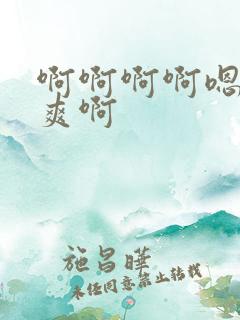 啊啊啊啊嗯
爽啊
施昌晔
未经同意禁止转载